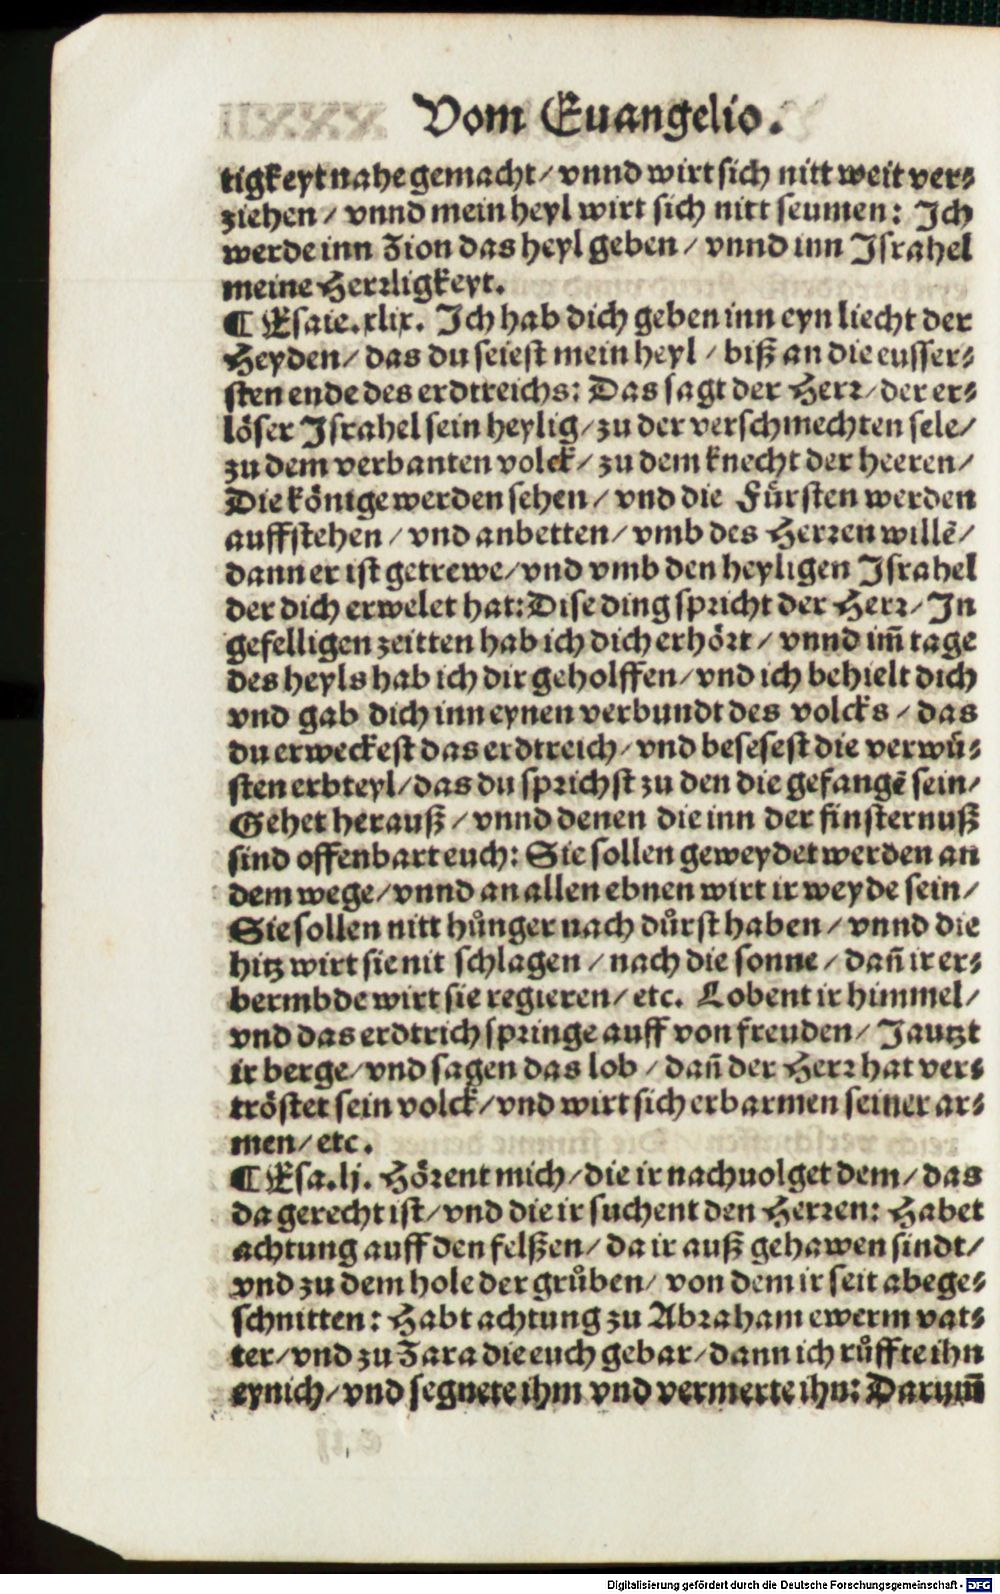 Vom Euangelio.
tigkeyt nahe gemacht/ vnnd wirt sich nitt weit ver⸗
ziehen/ vnnd mein heyl wirt sich nitt seumen: Ich
werde inn Zion das heyl geben/ vnnd inn Israhel
meine Herrligkeyt.
¶ Esaie.xlix. Ich hab dich geben inn eyn liecht der
Heyden/ das du seiest mein heyl/ biß an die eusser⸗
sten ende des erdtreichs: Das sagt der Herr/ der er⸗
löser Israhel sein heylig/ zu der verschmechten sele/
zu dem verbanten volck/ zu dem knecht der heeren/
Die könige werden sehen/ vnd die Fürsten werden
auffstehen/ vnd anbetten/ vmb des Herren willē/
dann er ist getrewe/ vnd vmb den heyligen Israhel
der dich erwelet hat: Dise ding spricht der Herr/ In
gefelligen zeitten hab ich dich erhört/ vnnd im̄ tage
des heyls hab ich dir geholffen/ vnd ich behielt dich
vnd gab dich inn eynen verbundt des volcks/ das
du erweckest das erdtreich/ vnd besesest die verwü⸗
sten erbteyl/ das du sprichst zu den die gefangē sein/
Gehet herauß/ vnnd denen die inn der finsternuß
sind offenbart euch: Sie sollen geweydet werden an
dem wege/ vnnd an allen ebnen wirt ir weyde sein/
Sie sollen nitt hůnger nach důrst haben/ vnnd die
hitz wirt sie nit schlagen/ nach die sonne/ dañ ir er⸗
bermbde wirt sie regieren/ etc. Lobent ir himmel/
vnd das erdtrich springe auff von freuden/ Jautzt
ir berge/ vnd sagen das lob/ dañ der Herr hat ver⸗
tröstet sein volck/ vnd wirt sich erbarmen seiner ar⸗
men/ etc.
¶ Esa.lj. Hörent mich/ die ir nachuolget dem/ das
da gerecht ist/ vnd die ir suchent den Herren: Habet
achtung auff den felßen/ da ir auß gehawen sindt/
vnd zu dem hole der grůben/ von dem ir seit abege⸗
schnitten: Habt achtung zu Abraham ewerm vat⸗
ter/ vnd zu Zara die euch gebar/ dann ich růffte ihn
eynich/ vnd segnete ihm vnd vermerte ihn: Darum̄
Digitalisierung gefördert durch die Deutsche Forschungsgemeinschaft - DFG